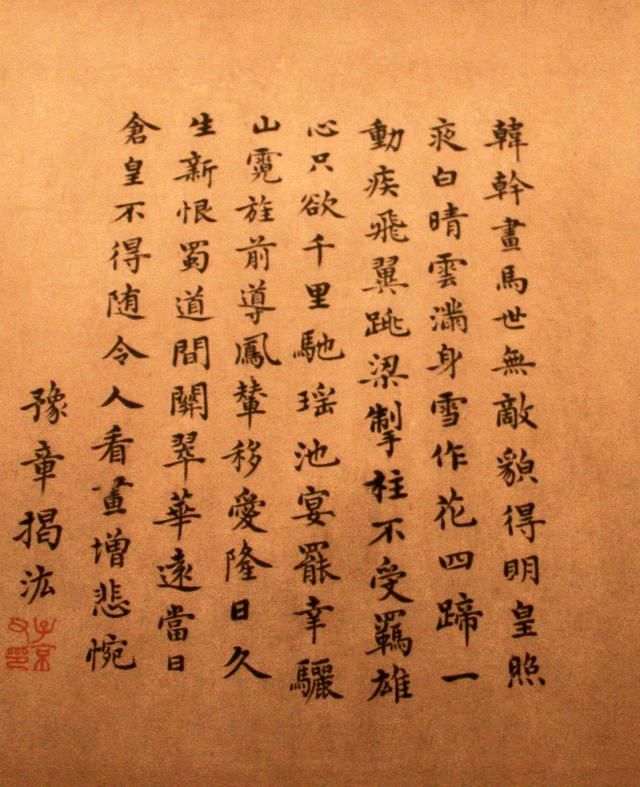 韓幹畫馬世無敵貌得明皇照
夜白晴雲滿身雪作花四蹄一
動疾飛翼跳梁掣柱不受羈雄
心只欲千里馳瑶池宴罷幸驪
山霓旌前導鳳輦移愛隆日久
生新恨蜀道間關翠華遠當日
倉皇不得随令人看畫增悲惋
豫章揭汯
子京父印